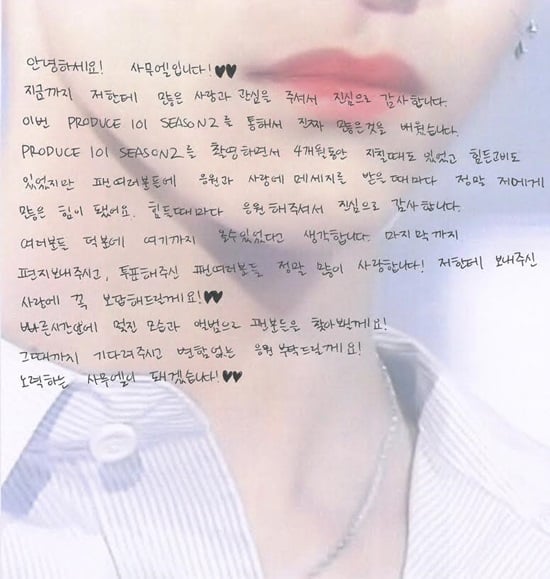 안녕하세요! 사무엘입니다!♥♥
지금까지 저한테 많은 사랑과 관심을 주셔서 진심으로 감사합니다.
이번 PRODUCE 101 SEASON2를 통해서 진짜 많은것을 배웠습니다.
PRODUCE 101 SEASON2를 촬영하면서 4개월동안 지칠때도 있었고 힘든고비도
있었지만 팬여러분들에 응원과 사랑에 메세지를 받을때마다 정말 저에게
많은 힘이 됐어요. 힘든때마다 응원해주셔서 진심으로 감사합니다.
여러분들 덕분에 여기까지 올수있었다고 생각합니다. 마지막까지
편지보내주시고, 투표해주신 팬여러분들 정말 많이 사랑합니다! 저한테 보내주신
사랑에 꼭 보답해드릴께요!♥♥
빠른시간안에 멋진 모습과 앨범으로 팬분들을 찾아뵐께요!
그때까지 기다려주시고 변함없는 응원 부탁드릴께요!
노력하는 사무엘이 돼겠습니다!♥♥